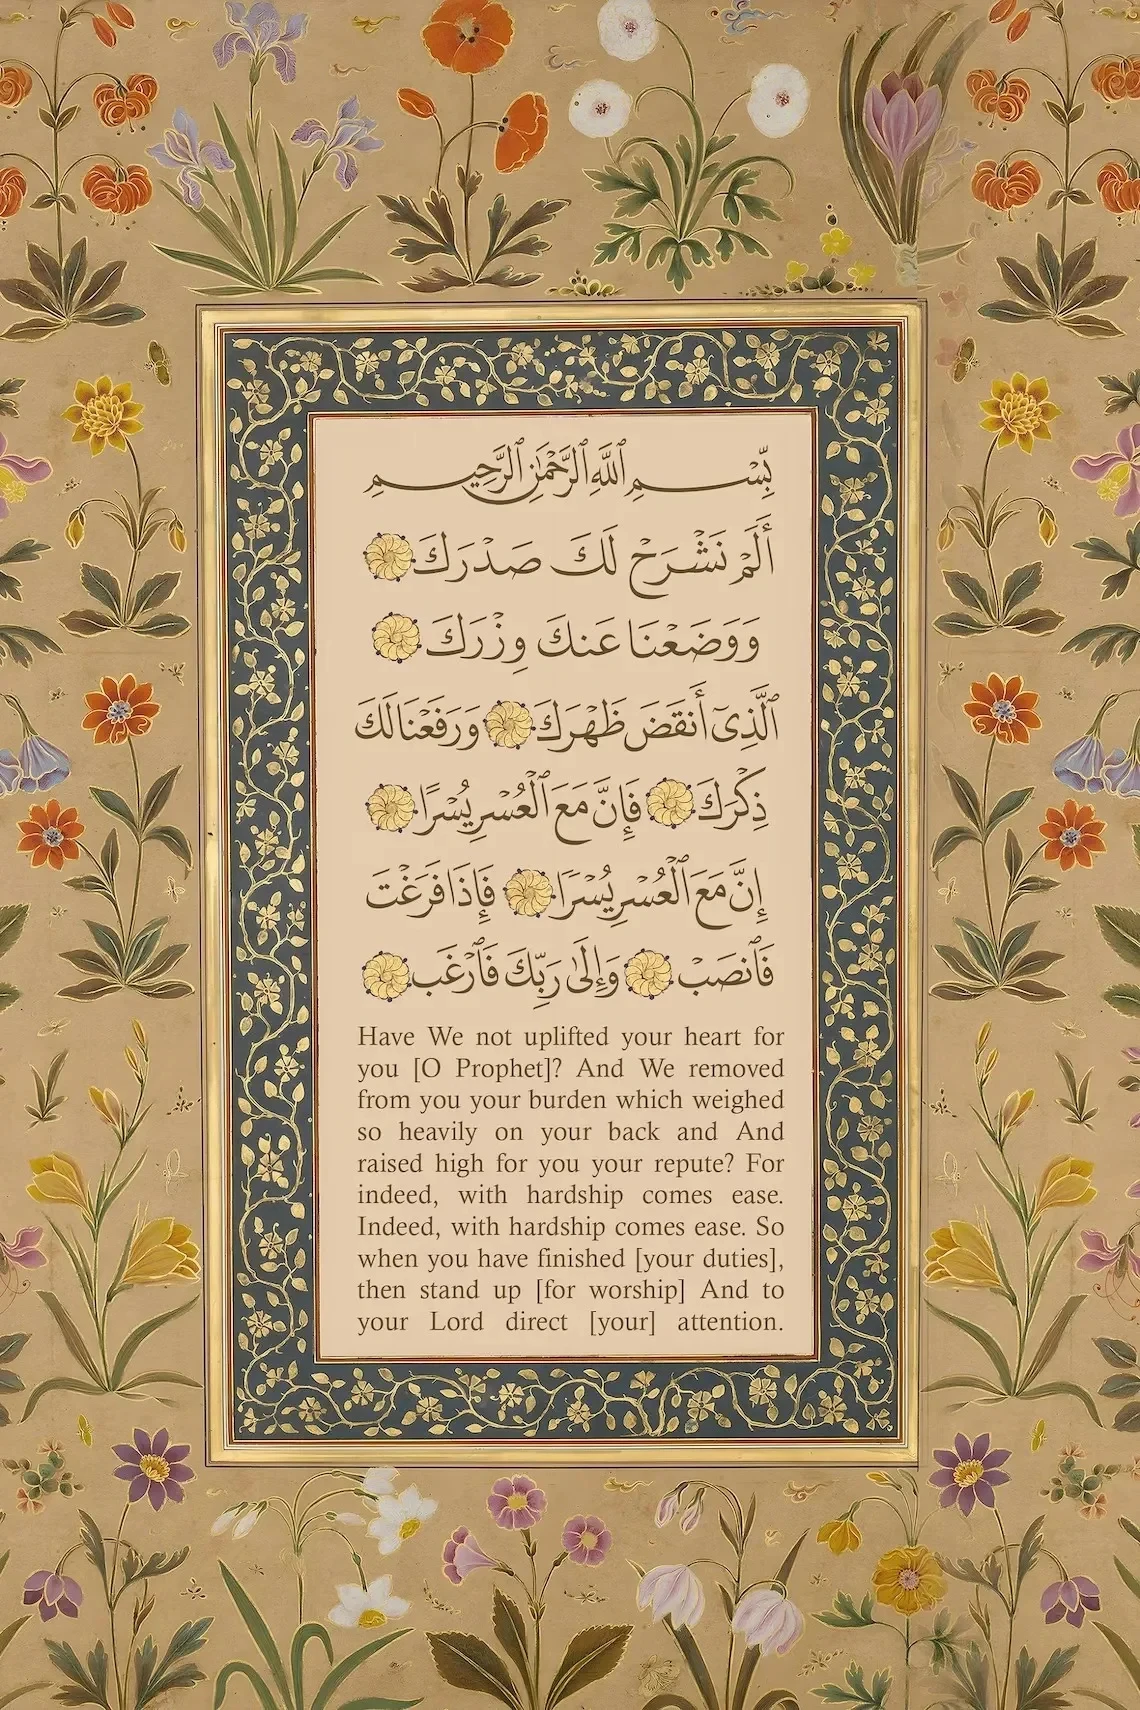 بِّسْمِ ٱللَّهِ ٱلرَّحْمَٰنِ ٱلرَّحِيمِ
أَلَمْ نَشْرَحْ لَكَ صَدْرَكَ
وَوَضَعْنَا عَنكَ وِزْرَكَ
ٱلَّذِىٓ أَنقَضَ ظَهْرَكَ وَرَفَعْنَا لَكَ
ذِكْرَكَ فَإِنَّ مَعَ ٱلْعُسْرِ يُسْرًا
إِنَّ مَعَ ٱلْعُسْرِ يُسْرًا فَإِذَا فَرَغْتَ
فَٱنصَبْ وَإِلَىٰ رَبِّكَ فَٱرْغَب
Have We not uplifted your heart for
you [O Prophet]? And We removed
from you your burden which weighed
so heavily on your back and And
raised high for you your repute? For
indeed, with hardship comes ease.
Indeed, with hardship comes ease. So
when you have finished [your duties],
then stand up [for worship] And to
your Lord direct [your] attention.